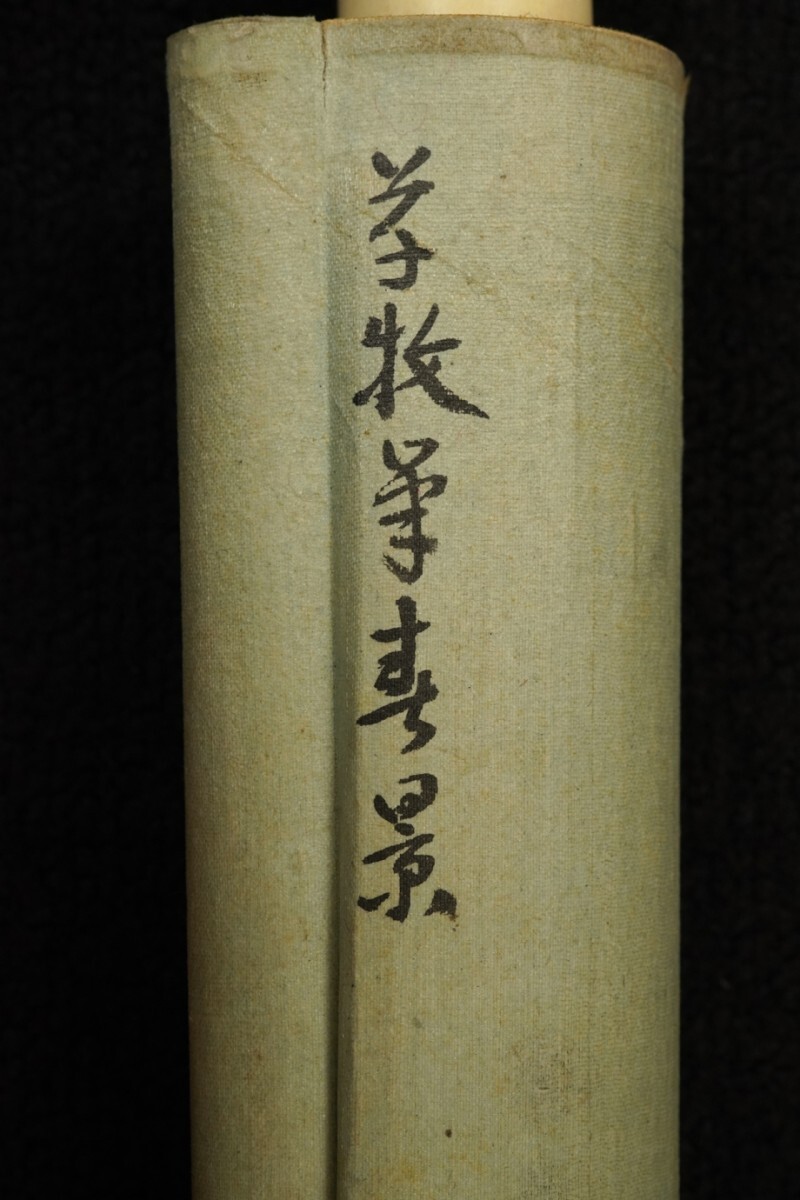 牧筆春景